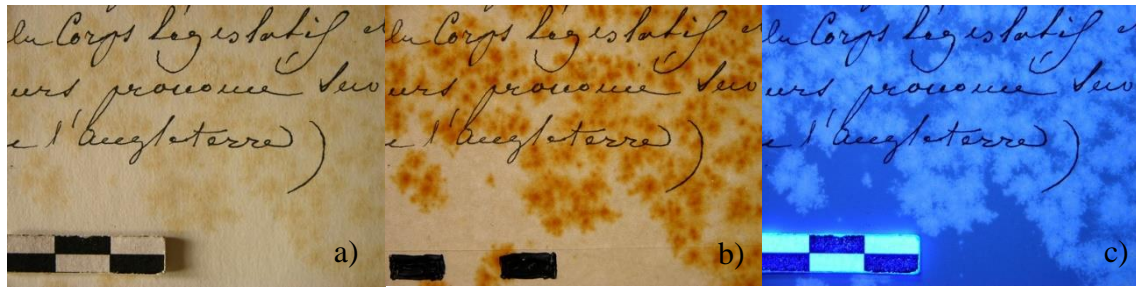 du Corps Législatif
prononcé
l'Angleterre)
a)
du Corps Législatif
prononcé
l'Angleterre)
b)
du Corps Législatif
prononcé
l'Angleterre)
c)